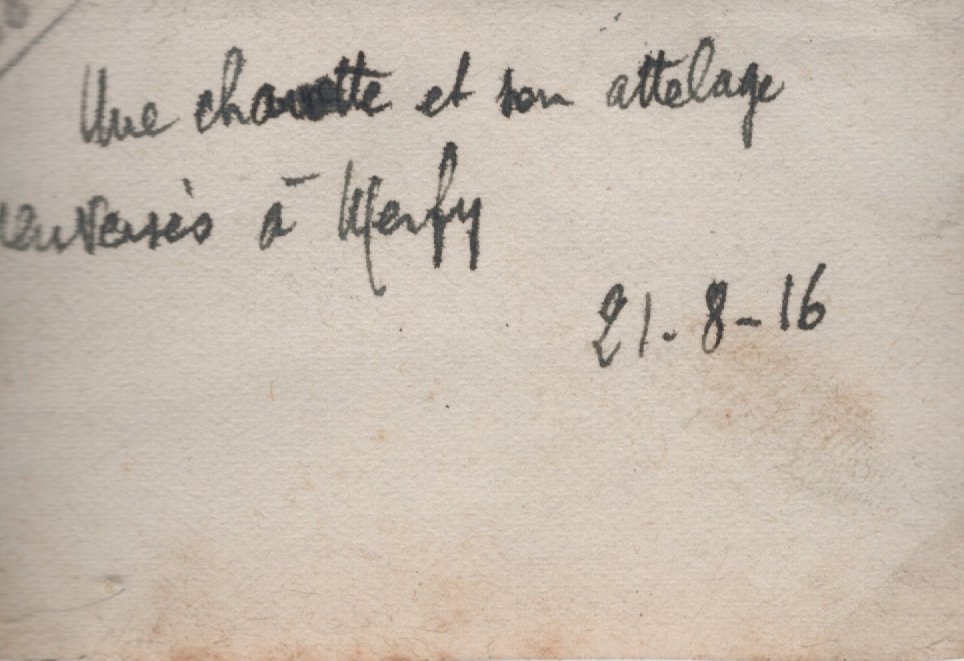 Une charrette et son attelage
renversés à Merfy
21-8-16